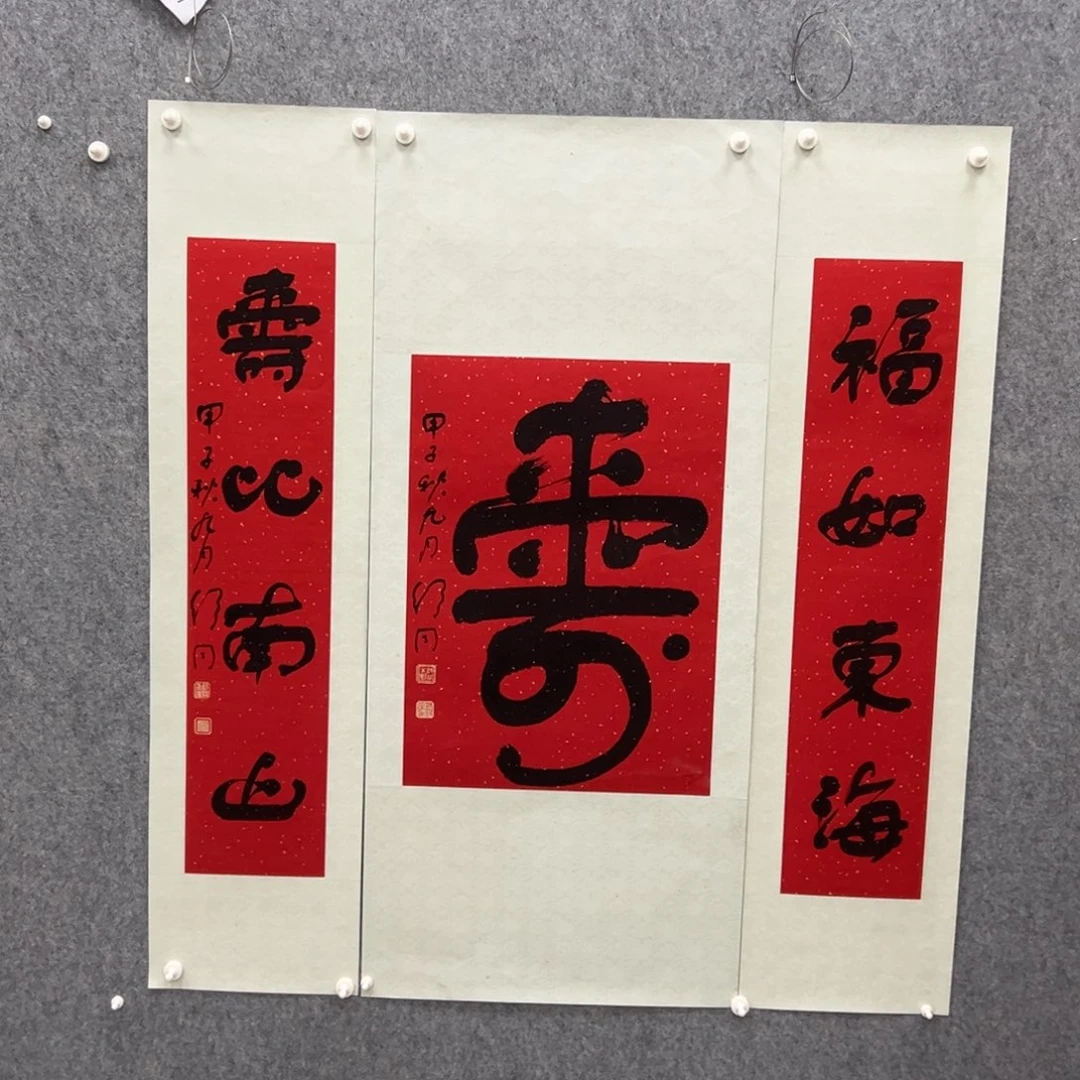 福如東海
壽
甲子秋九月 舒同
壽比南山
甲子秋九月 舒同